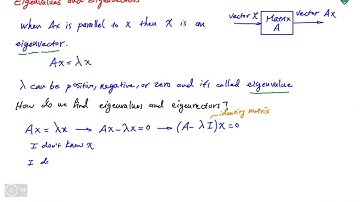 Eigenvalues and Eigenvectors
When Ax is parallel to x then x is an
eigenvector.
vector x Matrix A vector Ax
Ax = λx
λ can be positive, negative, or zero and it's called eigenvalue
How do we find eigenvalues and eigenvectors?
identity matrix
Ax = λx → Ax - λx = 0 → (A - λI)x = 0
I don't know x
I do